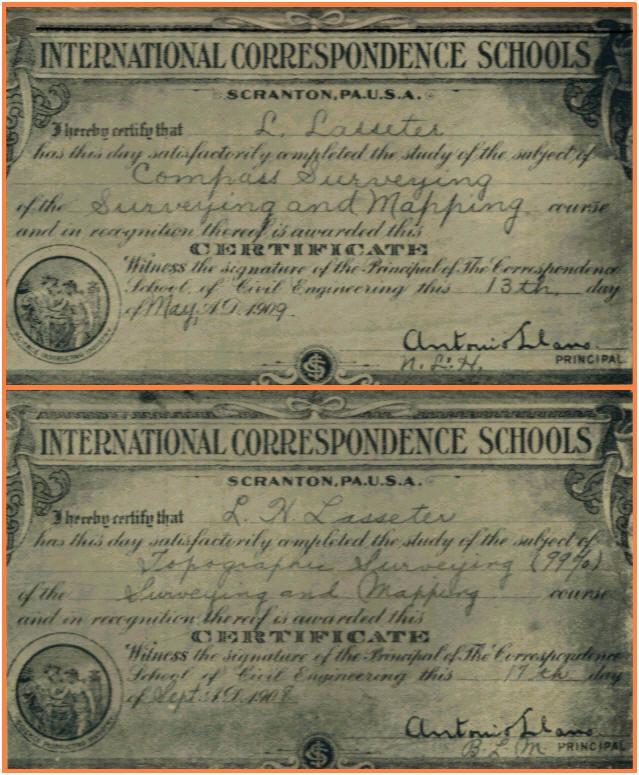 INTERNATIONAL CORRESPONDENCE SCHOOLS
SCRANTON, PA. U.S.A.
I hereby certify that L. Lasseter
has this day satisfactorily completed the study of the subject of
Compass Surveying
of the Surveying and Mapping course
and in recognition thereof is awarded this
CERTIFICATE
Witness the signature of the Principal of The Correspondence
School of Civil Engineering this 13th day
of May A.D. 1909.
Antonio Llano
N. L. H. PRINCIPAL
SCIENCE INSTRUCTING INDUSTRY
INTERNATIONAL CORRESPONDENCE SCHOOLS
SCRANTON, PA. U.S.A.
I hereby certify that L. H Lasseter
has this day satisfactorily completed the study of the subject of
Topographic Surveying (99%)
of the Surveying and Mapping course
and in recognition thereof is awarded this
CERTIFICATE
Witness the signature of the Principal of The Correspondence
School of Civil Engineering this 17th day
of Sept A.D. 1908
Antonio Llano
B. L. M. PRINCIPAL
SCIENCE INSTRUCTING INDUSTRY